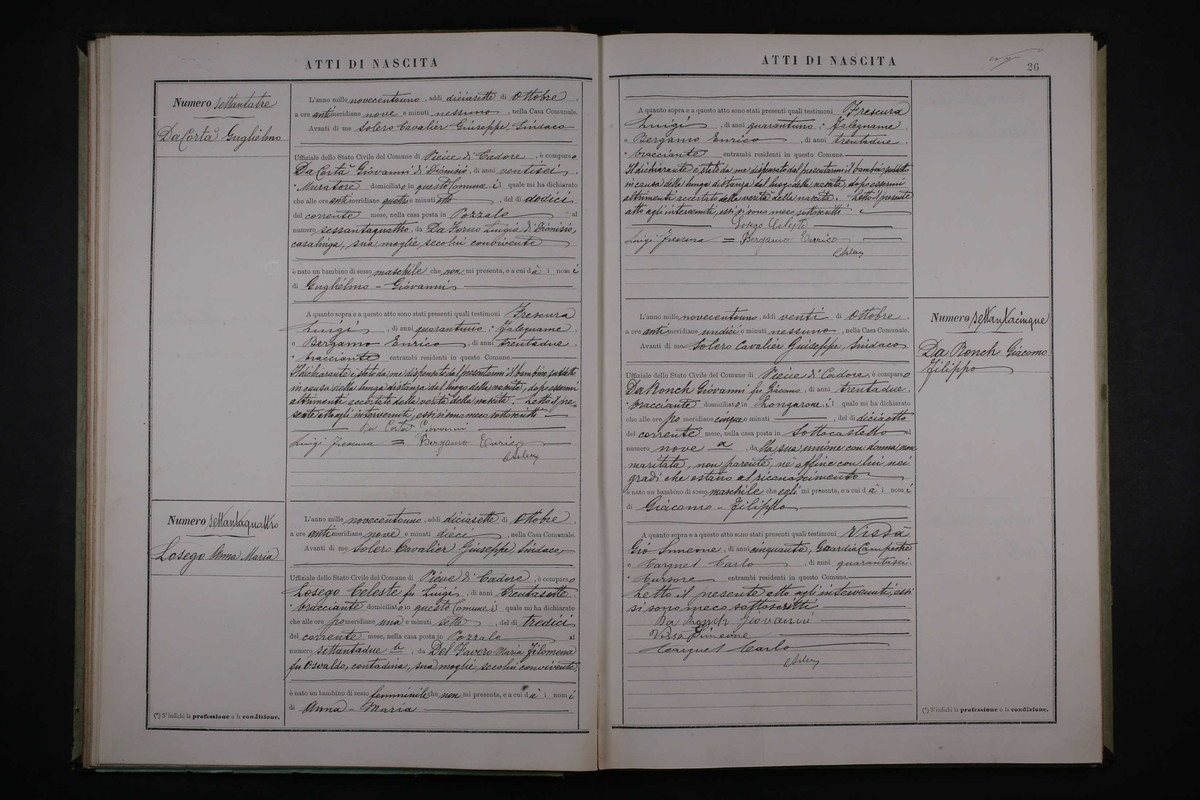 ATTI DI NASCITA
Numero settantatre
Da Cortà Guglielmo
L'anno mille novecentouno, addì diciasette di Ottobre,
a ore antimeridiane nove e minuti nessuno, nella Casa Comunale.
Avanti di me Solero Cavalier Giuseppe, Sindaco
Uffiziale dello Stato Civile del Comune di Pieve di Cadore, è comparso
Da Cortà Giovanni di Dionisio, di anni ventisei,
Muratore domiciliato in questo Comune, il quale mi ha dichiarato
che alle ore antimeridiane quattro e minuti otto, del dì dodici
del corrente mese, nella casa posta in Pozzale al
numero sessantaquattro, da Da Forno Luigia di Dionisio,
casalinga, sua moglie, seco lui convivente
è nato un bambino di sesso maschile che non mi presenta, e a cui dà i nomi
di Guglielmo - Giovanni
A quanto sopra e a questo atto sono stati presenti quali testimoni Frescura
Luigi, di anni quarantuno, falegname
e Bergamo Enrico, di anni trentadue,
bracciante entrambi residenti in questo Comune.
Il dichiarante è stato da me dispensato dal presentarmi il bambino suddetto
in causa della lunga distanza dal luogo della nascita, dopo essermi
altrimenti accertato della verità della nascita. Letto il pre-
sente atto agli intervenuti, essi si sono meco sottoscritti
Da Cortà Giovanni
Luigi Frescura = Bergamo Enrico
Numero settantaquattro
Losego Anna Maria
L'anno mille novecentouno, addì diciasette di Ottobre,
a ore antimeridiane nove e minuti dieci, nella Casa Comunale.
Avanti di me Solero Cavalier Giuseppe, Sindaco
Uffiziale dello Stato Civile del Comune di Pieve di Cadore, è comparso
Losego Celeste fu Luigi, di anni trentasette
bracciante domiciliato in questo Comune, il quale mi ha dichiarato
che alle ore pomeridiane una e minuti sette, del dì tredici
del corrente mese, nella casa posta in Pozzale al
numero settantadue, da Del Favero Maria Filomena
fu Osvaldo, contadina, sua moglie, seco lui convivente
è nato un bambino di sesso femminile che non mi presenta, e a cui dà i nomi
di Anna - Maria
(*) S'indichi la professione o la condizione.
ATTI DI NASCITA
26
A quanto sopra e a questo atto sono stati presenti quali testimoni Frescura
Luigi, di anni quarantuno, falegname
e Bergamo Enrico, di anni trentadue,
bracciante entrambi residenti in questo Comune.
Il dichiarante è stato da me dispensato dal presentarmi il bambino suddetto
in causa della lunga distanza dal luogo della nascita, dopo essermi
altrimenti accertato della verità della nascita. Letto il presente
atto agli intervenuti, essi si sono meco sottoscritti
Losego Celeste
Luigi Frescura = Bergamo Enrico
Numero settantacinque
Da Ronch Giacomo
Filippo
L'anno mille novecentouno, addì venti di Ottobre
a ore antimeridiane undici e minuti nessuno, nella Casa Comunale.
Avanti di me Solero Cavalier Giuseppe, Sindaco
Uffiziale dello Stato Civile del Comune di Pieve di Cadore, è comparso
Da Ronch Giovanni fu Giacomo, di anni trentadue,
bracciante domiciliato in Longarone, il quale mi ha dichiarato
che alle ore pomeridiane cinque e minuti, del dì diciotto
del corrente mese, nella casa posta in Sottocastello al
numero nove a, da lla sua unione con donna non
maritata, non parente, nè affine con lui nei
gradi che ostano al riconoscimento
è nato un bambino di sesso maschile che egli mi presenta, e a cui dà i nomi
di Giacomo - Filippo
A quanto sopra e a questo atto sono stati presenti quali testimoni Vissà
Gio Simeone, di anni cinquanta, Guardia Campestre
e Cargnel Carlo, di anni quarantasei,
Cursore entrambi residenti in questo Comune.
Letto il presente atto agli intervenuti, essi
si sono meco sottoscritti
Da Ronch Giovanni
Vissà Simeone
Cargnel Carlo
(*) S'indichi la professione o la condizione.